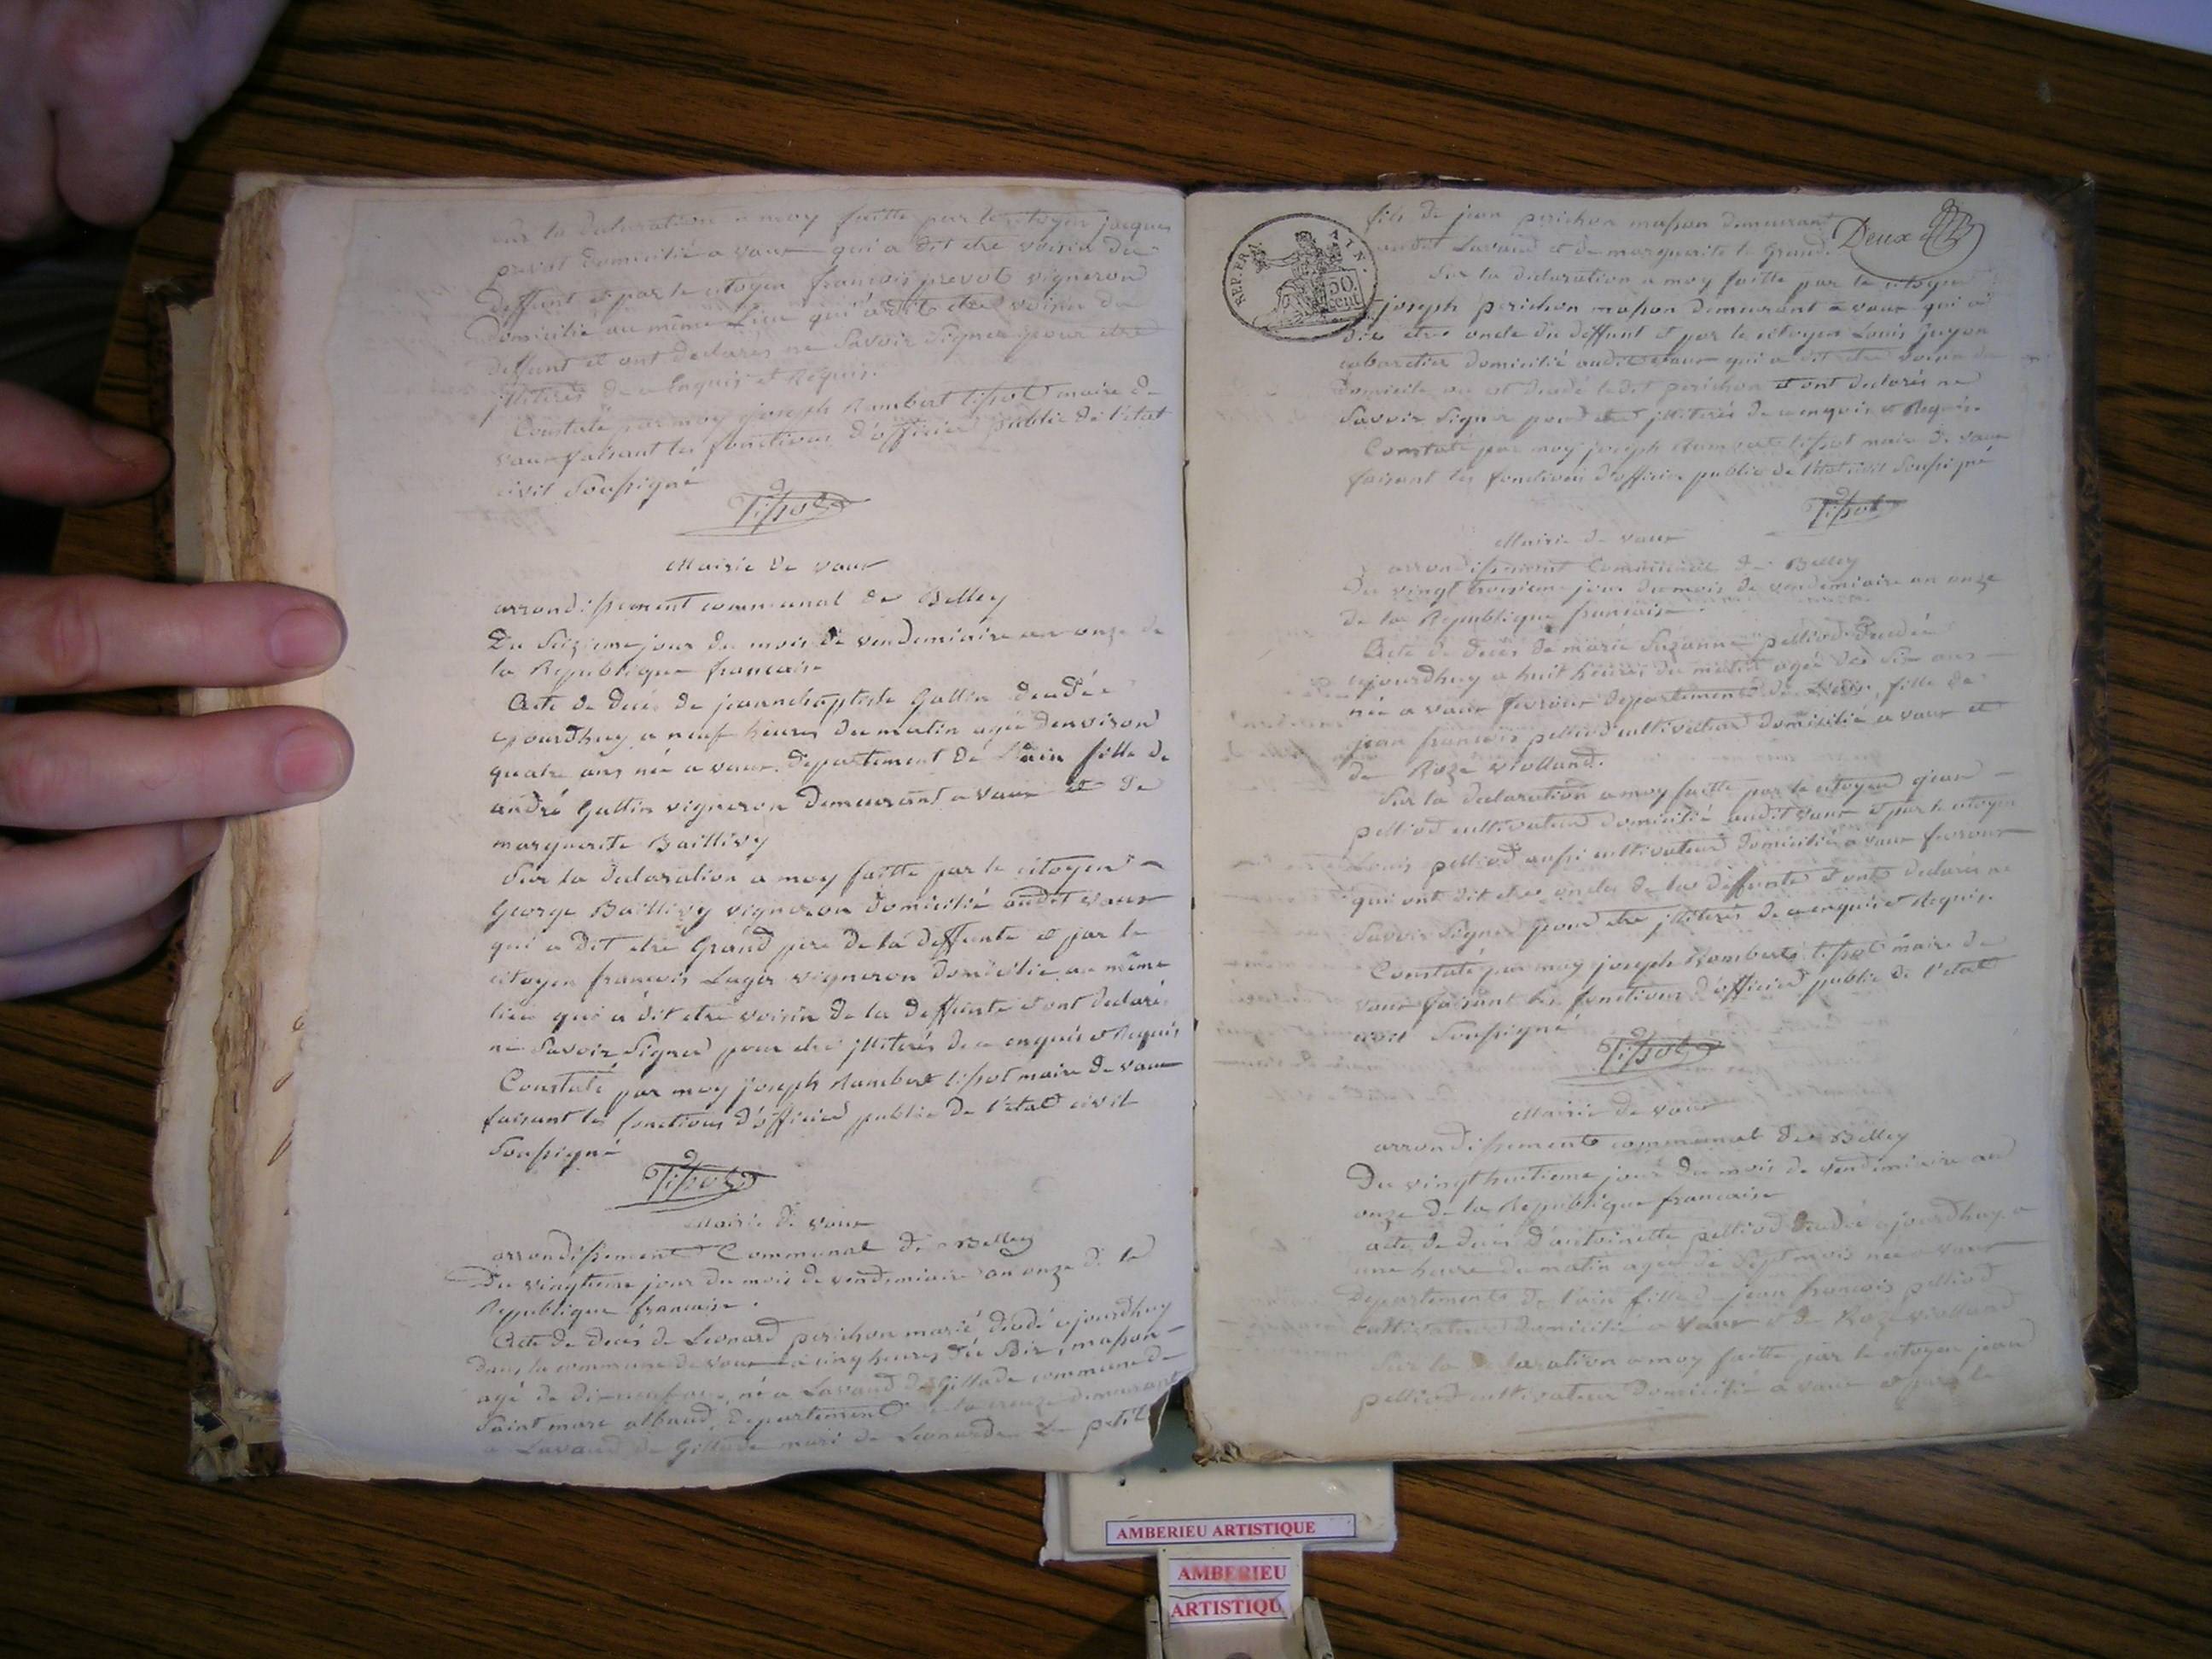 sur la declaration a moy faitte par le citoyen jacques
prevot domicilié a vaux qui a dit etre voisin du
deffunt et par le citoyen francois prevot vigneron
domicilié au même Lieu qui a dit etre voisin du
deffunt et ont declarés ne Savoir Signer pour etre
jlliterés de ce Enquis et Requis.
Constaté par moy joseph Rambert tissot maire de
vaux faisant les fonctions d'officier public de l'etat
civil Soussigné
Tissot
Mairie de vaux
arrondissement communal de Belley
Du Seizieme jour du mois de vendemiaire an onze de
la Republique francaise
Acte de decés de jeannebaptiste Gallin decedée
ajourdhuy a neuf heures du matin agée denviron
quatre ans née a vaux departement de l'ain fille de
andré Gallin vigneron demeurant a vaux et de
marguerite Baillivy
Sur la declaration a moy faitte par le citoyen
George Baillivy vigneron domicilié audit vaux
qui a dit etre Grand pere de la deffunte et par le
citoyen francois Lager vigneron domicilié au même
lieu qui a dit etre voisin de la deffunte et ont declarés
ne Savoir Signer pour etre jlliterés de ce enquis et Requis
Constaté par moy joseph Rambert tissot maire de vaux
faisant les fonctions d'officier public de l'etat civil
Soussigné
Tissot
Mairie de vaux
arrondissement Communal de Belley
Du vingtieme jour du mois de vendemiaire an onze de la
Republique francaise.
Acte de decés de Leonard perichon marié decedé ajourdhuy
dans la commune de vaux a cinq heures du Soir, masson
agé de né a Lavaud de Gillade commune de
Saint marc departement de la creuze demeurant
a Lavaud de Gillade mari de Leonarde Le petit
fils de jean perichon masson demeurant
audit Lavaud et de marguerite le Grand.
Deux
REP. FRA
50 cent
Sur la declaration a moy faitte par le citoyen
joseph perichon masson demeurant a vaux qui a
dit etre oncle du deffunt et par le citoyen Louis Guyon
cabaretier domicilié audit vaux qui a dit etre voisin du
domicile ou est decedé ledit perichon et ont declarés ne
Savoir Signer pour etre jlliterés de ce enquis et Requis.
Constaté par moy joseph Rambert tissot maire de vaux
faisant les fonctions d'officier public de l'etat civil Soussigné
Tissot
Mairie de vaux
arrondissement Communal de Belley
Du vingt troisieme jour du mois de vendemiaire an onze
de la Republique francaise.
Acte de decés de marie Suzanne pelliod decedée
ajourdhuy a huit heures du matin agée de Six ans
née a vaux fevroux departement de l'ain, fille de
jean francois pelliod cultivateur domicilié a vaux et
de Roze violland.
Sur la declaration a moy faitte par le citoyen jean
pelliod cultivateur domicilié audit vaux et par le citoyen
Louis pelliod aussi cultivateur domicilié a vaux fevroux
qui ont dit etre oncles de la deffunte et ont declarés ne
Savoir Signer pour etre jlliterés de ce enquis et Requis.
Constaté par moy joseph Rambert tissot maire de
vaux faisant les fonctions d'officier public de l'etat
civil Soussigné
Tissot
Mairie de vaux
arrondissement communal de Belley
Du vingt huitieme jour du mois de vendemiaire an
onze de la Republique francaise
acte de decés d'antoinette pelliod decedée ajourdhuy a
une heure du matin agée de Sept mois née a vaux
departement de l'ain fille de jean francois pelliod
cultivateur domicilié a vaux et de Roze violland
Sur la declaration a moy faitte par le citoyen jean
pelliod cultivateur domicilié a vaux et par le
AMBERIEU ARTISTIQUE
AMBERIEU
ARTISTIQU